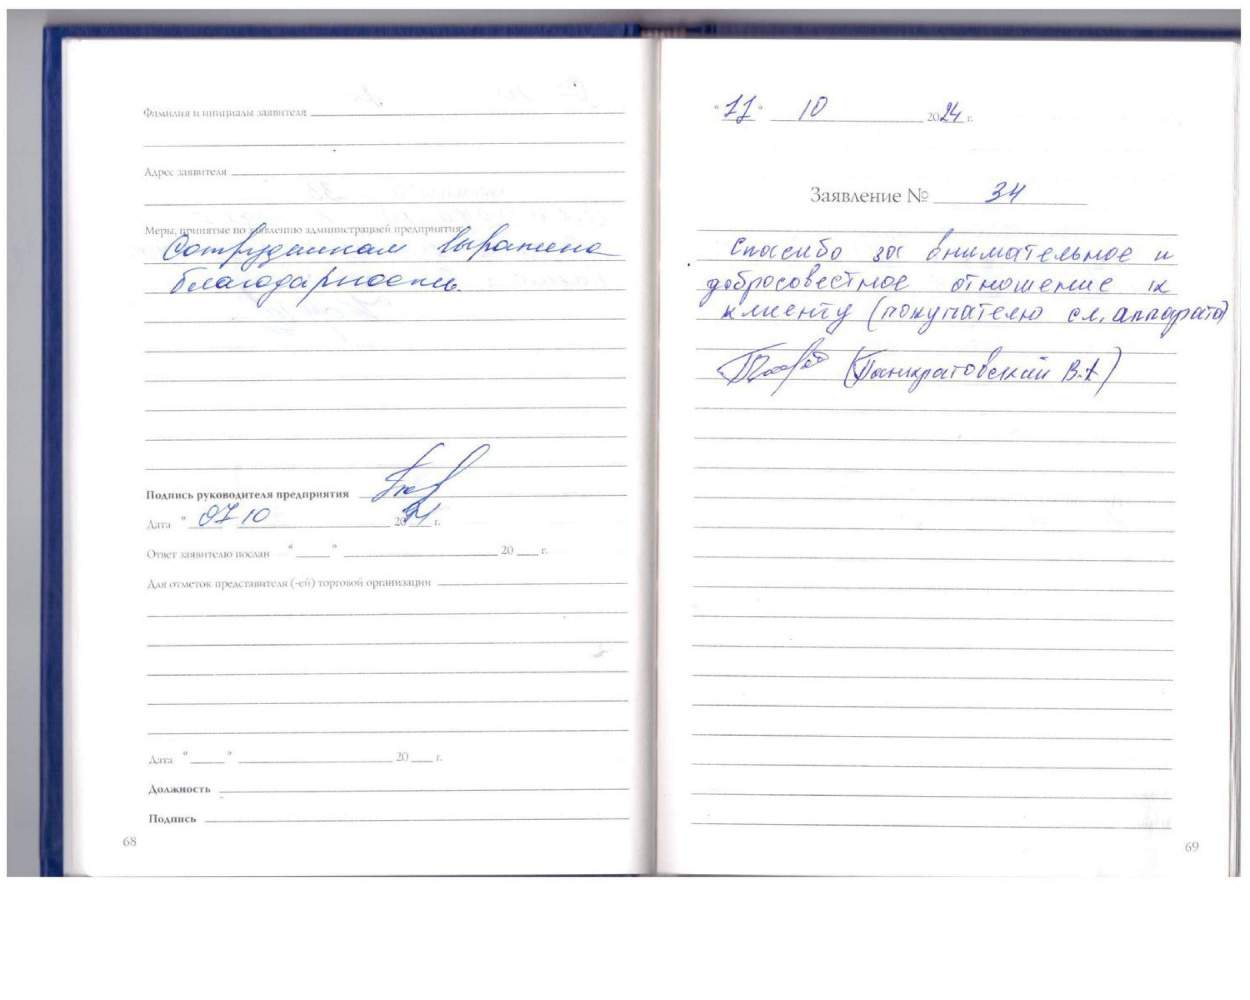 Фамилия и инициалы заявителя
Адрес заявителя
Меры, принятые по заявлению администрацией предприятия
Сотрудникам выражена
благодарность.
Подпись руководителя предприятия
Дата " 07 10 20 24 г.
Ответ заявителю послан " " 20 г.
Для отметок представителя (-ей) торговой организации
Дата " " 20 г.
Должность
Подпись
68
" 11 " 10 2024 г.
Заявление № 34
Спасибо за внимательное и
добросовестное отношение к
клиенту (покупателю сл. аппарата)
(Панкратовский В.А)
69